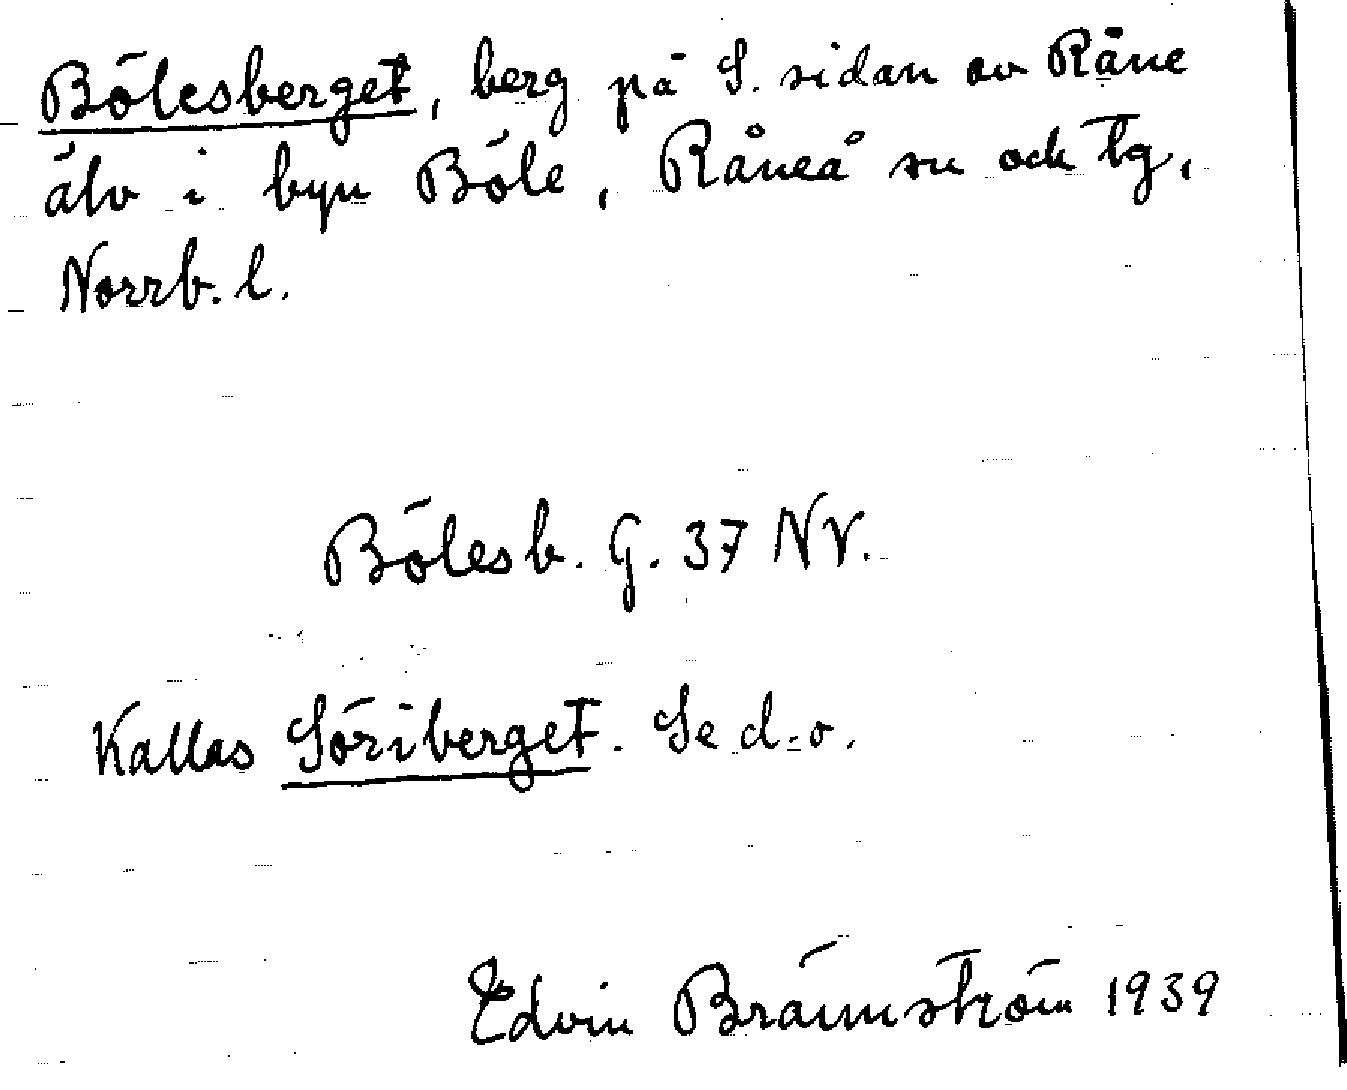 Bölesberget, berg på S. sidan av Råne
älv i byn Böle, Råneå sn och tg,
Norrb. l.
Bölesb. G. 37 NV.
Kallas Söriberget. Se d. o.
Edvin Brännström 1939